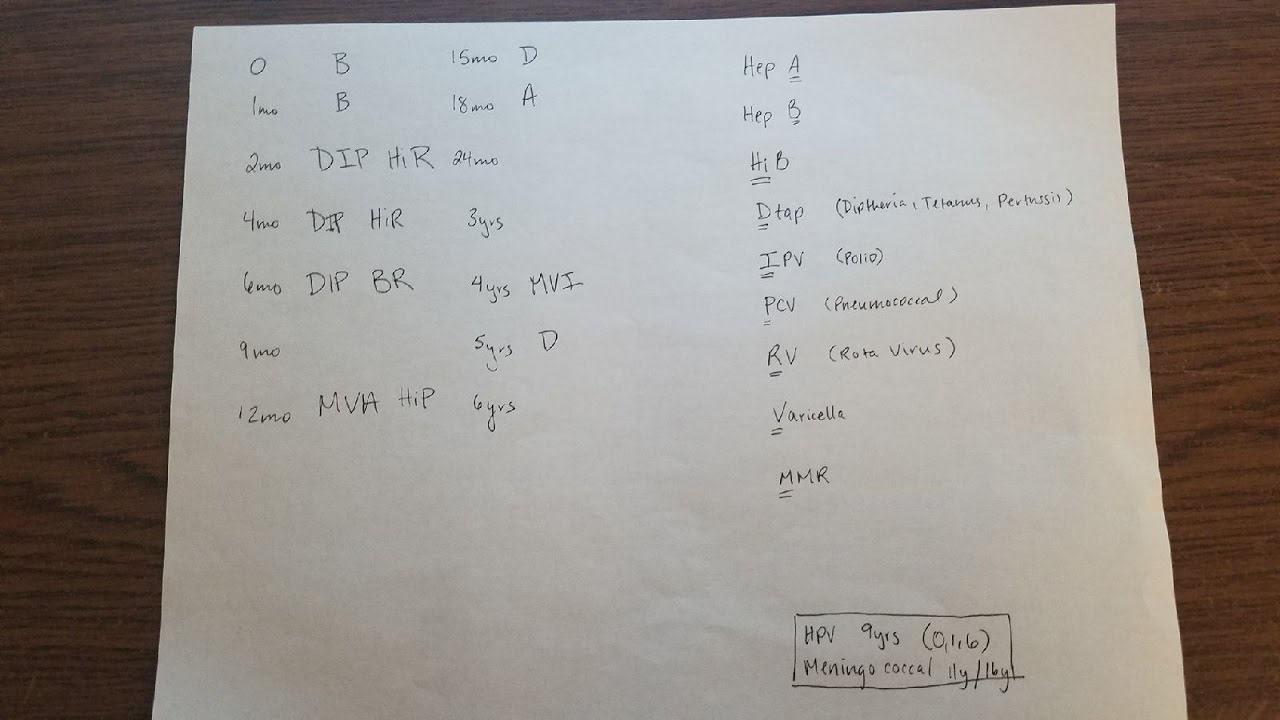 0 B 15mo D
1mo B 18mo A
2mo DIP HiR 24mo
4mo DIP HiR 3yrs
6mo DIP BR 4yrs MVI
9mo 5yrs D
12mo MVA HiP 6yrs
Hep A
Hep B
HiB
Dtap (Diptheria, Tetanus, Pertussis)
IPV (Polio)
PCV (Pneumococcal)
RV (Rota Virus)
Varicella
MMR
HPV 9yrs (0,1,6)
Meningococcal 11y/16y